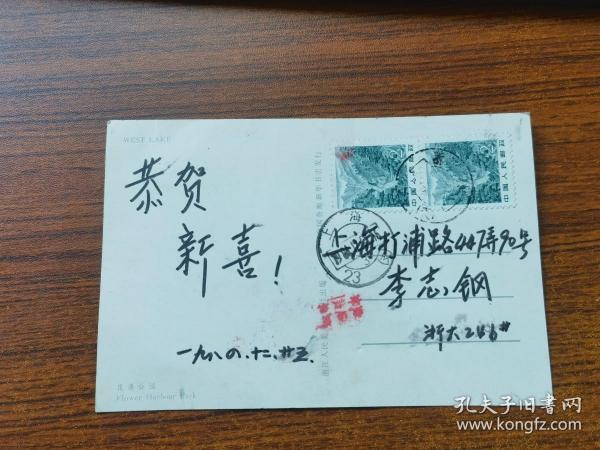 WEST LAKE
恭贺
新喜!
一九八〇.十二.廿五.
花港公园
Flower Harbour Park
中国人民邮政
中国人民邮政
上海
23
上海打浦路44弄90号
李志钢
浙大246#
孔夫子旧书网
www.kongfz.com